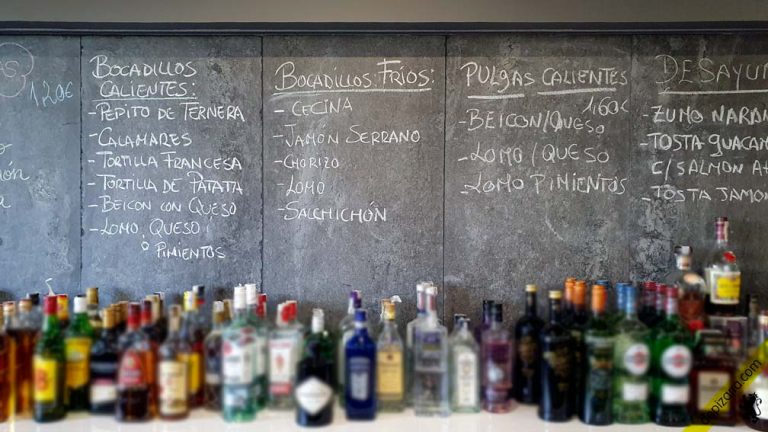 120€
BOCADILLOS
CALIENTES:
- PEPITO DE TERNERA
- CALAMARES
- TORTILLA FRANCESA
- TORTILLA DE PATATA
- BEICON CON QUESO
- LOMO, QUESO
o PIMIENTOS
BOCADILLOS FRÍOS:
- CECINA
- JAMÓN SERRANO
- CHORIZO
- LOMO
- SALCHICHÓN
PULGAS CALIENTES
1,60€
- BEICON/QUESO
- LOMO/QUESO
- LOMO PIMIENTOS
DESAYUN
- ZUMO NARAN
- TOSTA GUACAM
C/SALMON A
- TOSTA JAMON